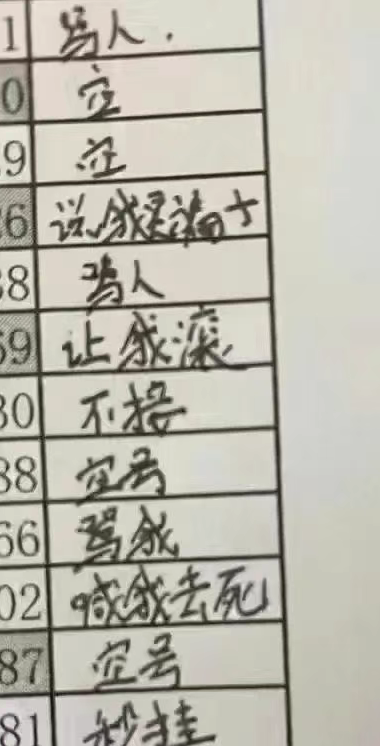 1 骂人.
0 空
9 空
6 说我是骗子
8 骂人
59 让我滚
30 不接
88 空号
66 骂我
02 喊我去死
87 空号
81 秒挂